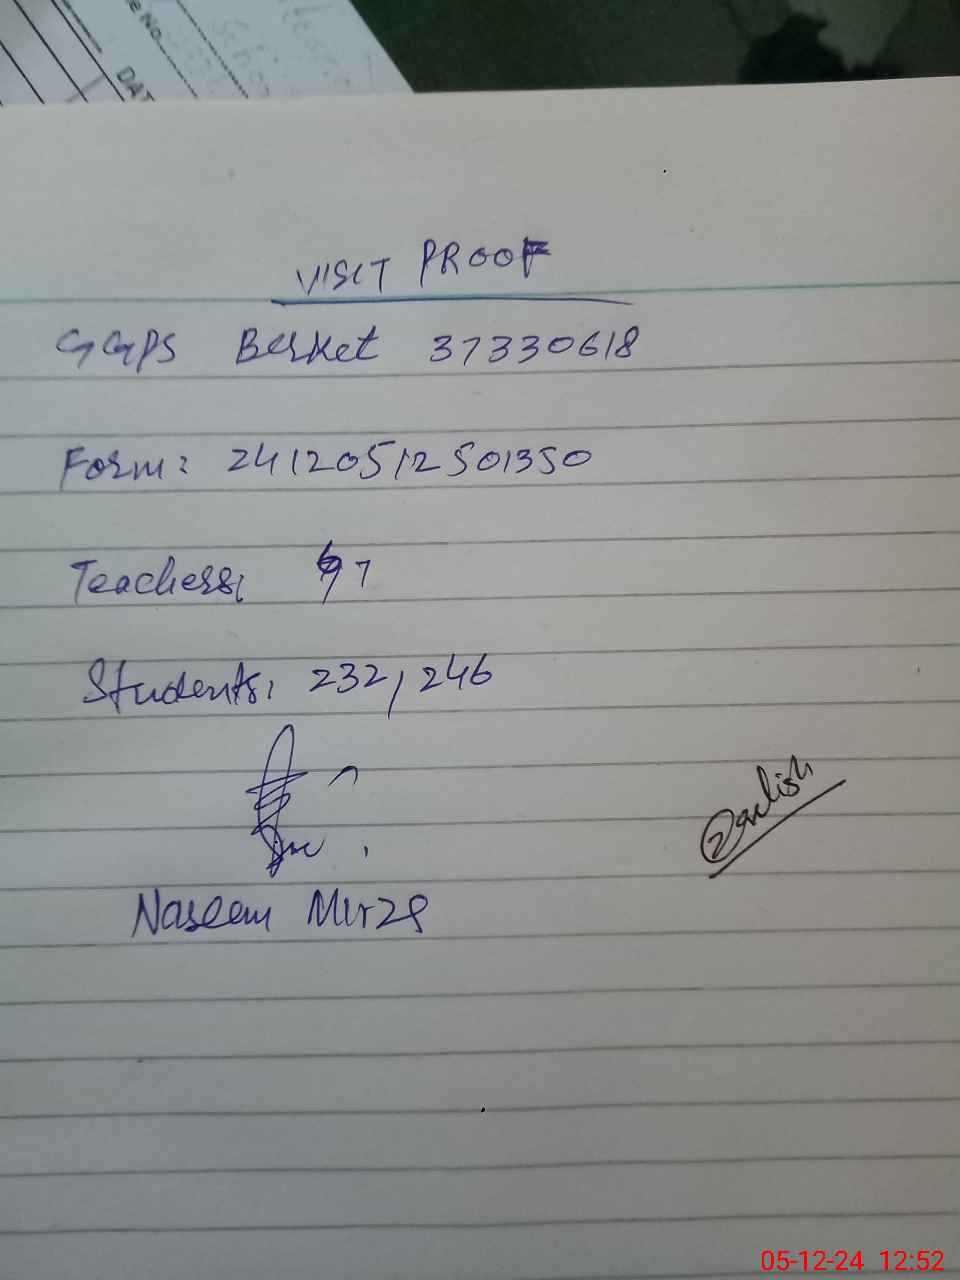 e No.
DAT
VISIT PROOF
GGPS Berket 37330618
Form: 24120512501350
Teachers: 7
Students: 232, 246
Naseem Mirza
05-12-24 12:52